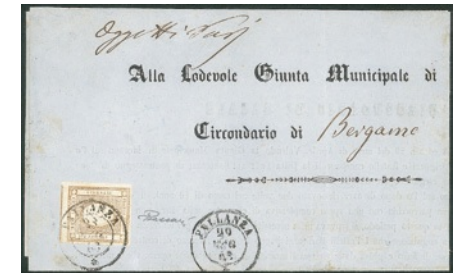 Oggetti Varj
Alla Lodevole Giunta Municipale di
Circondario di Bergamo
PALLANZA
PALLANZA
29
62